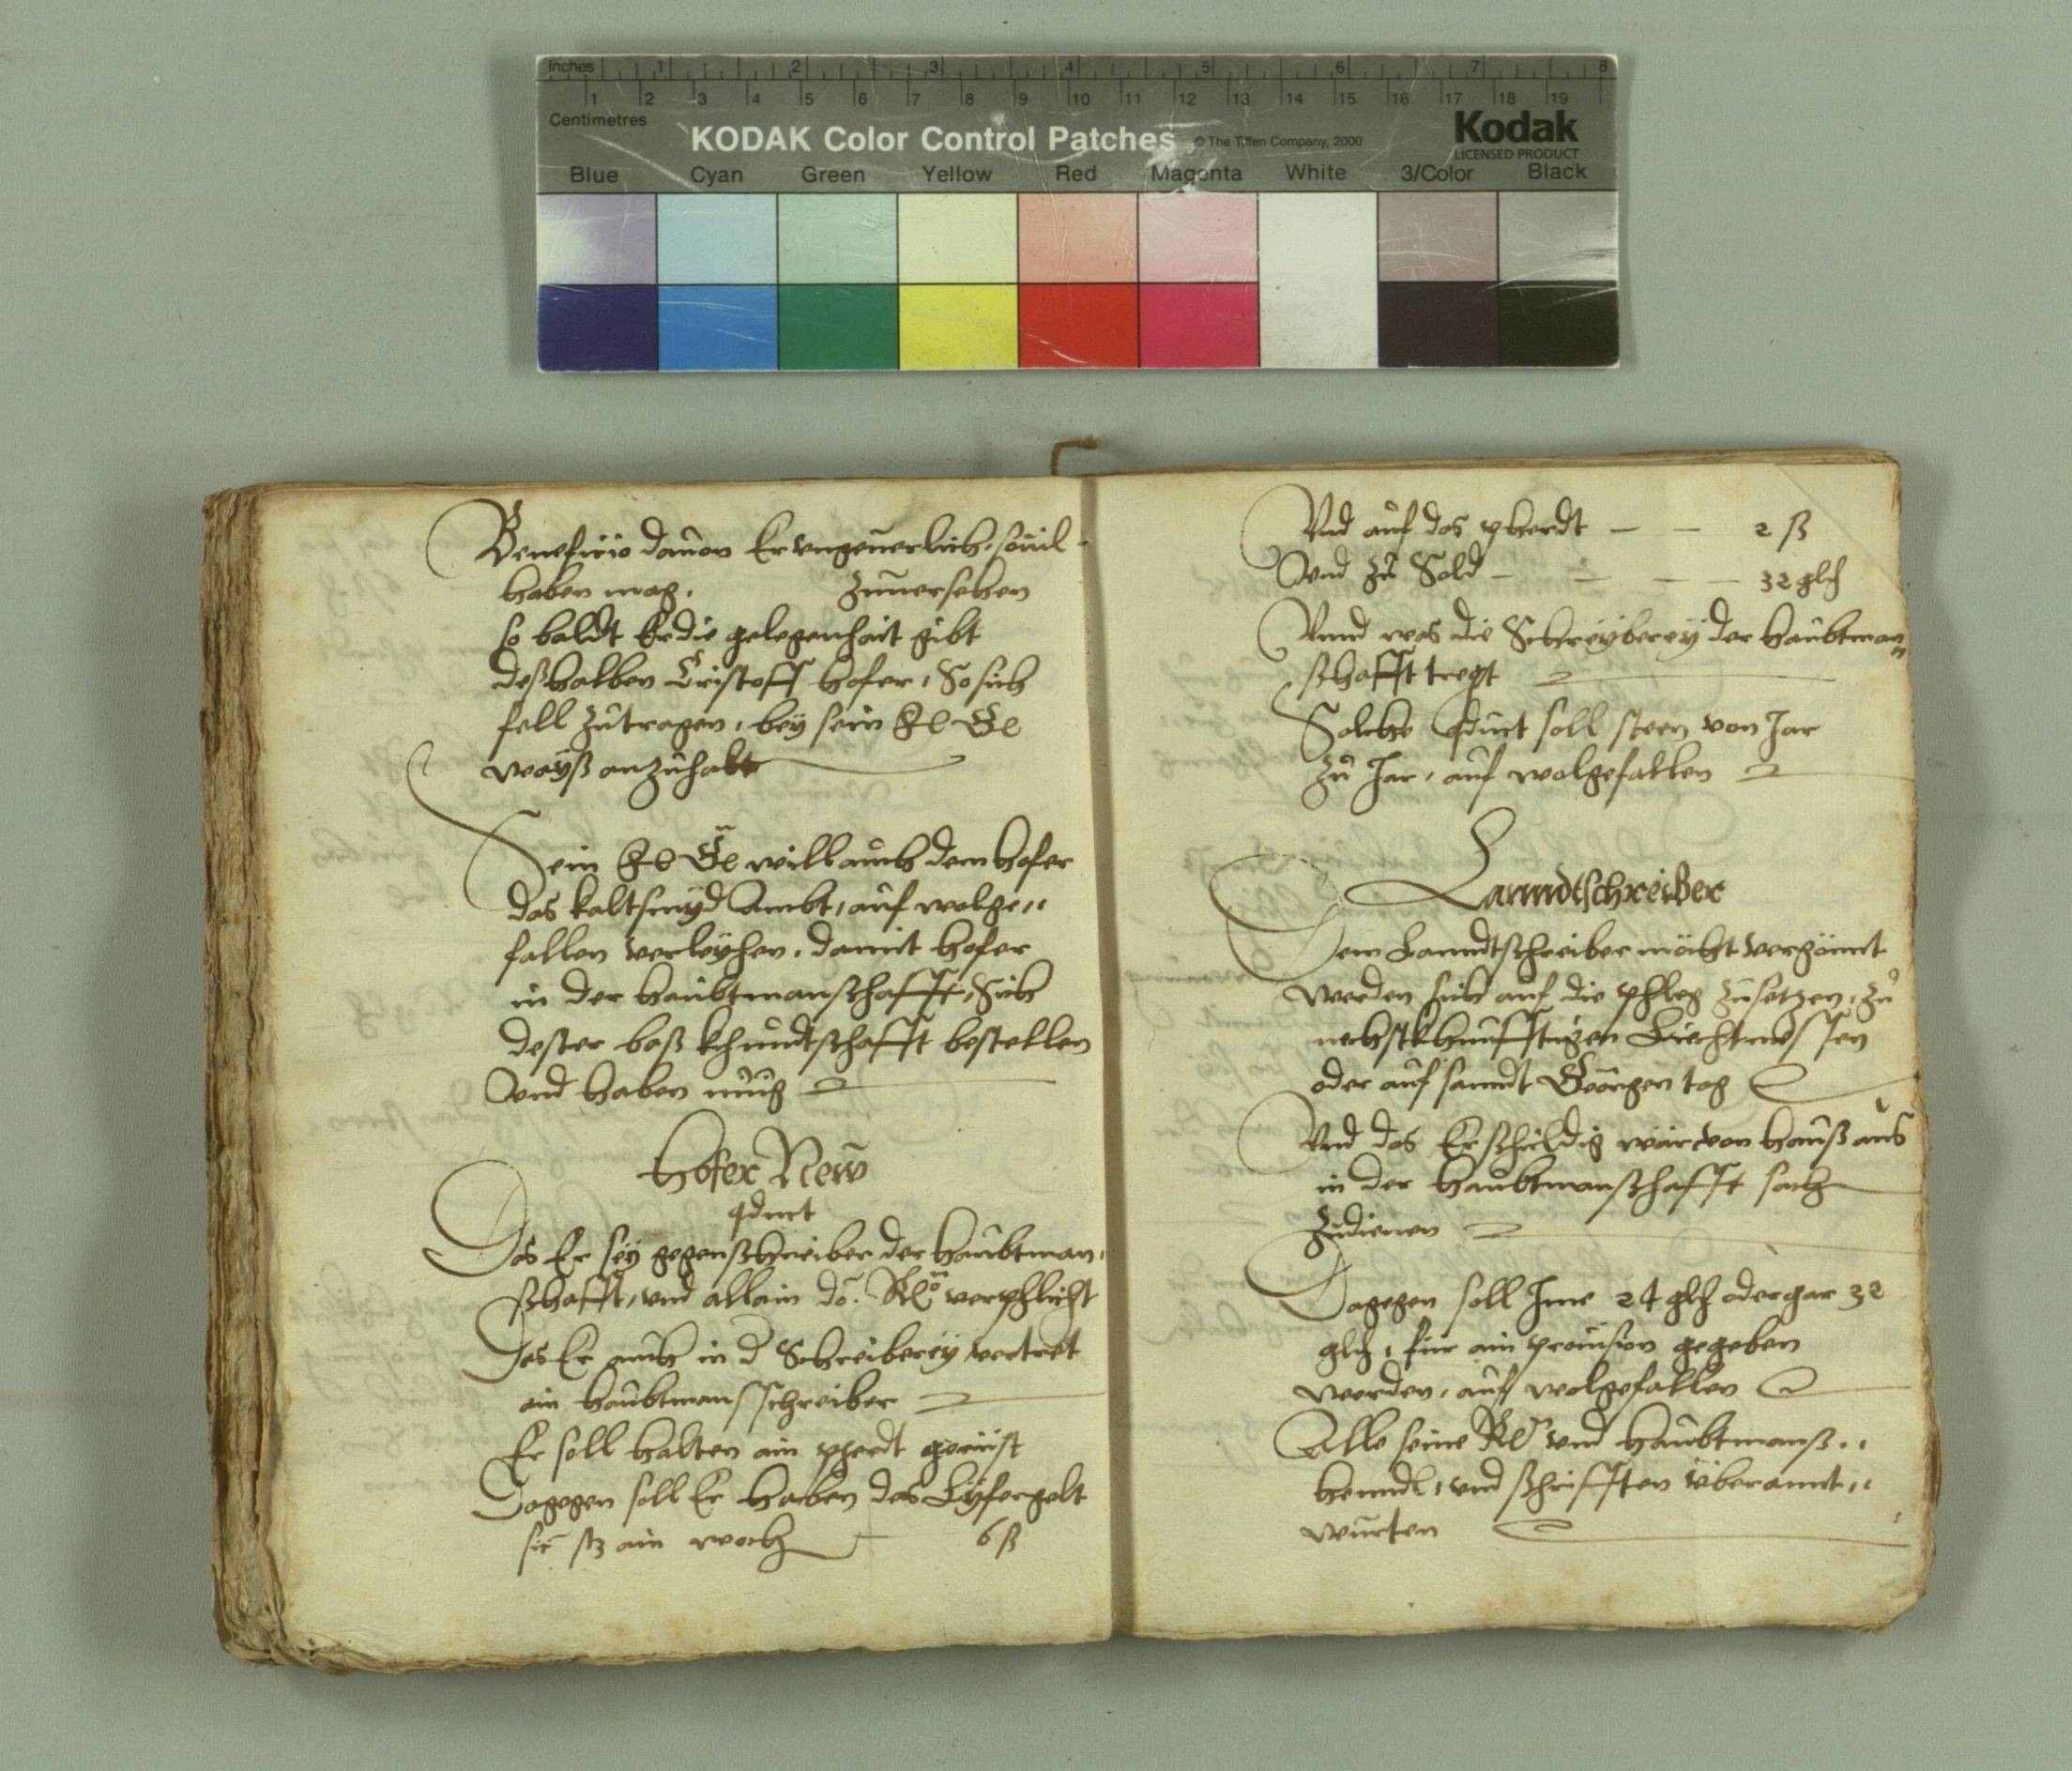 Inches 1 2 3 4 5 6 7 8
1 2 3 4 5 6 7 8 9 10 11 12 13 14 15 16 17 18 19
Centimetres
KODAK Color Control Patches © The Tiffen Company, 2000 Kodak
LICENSED PRODUCT
Blue Cyan Green Yellow Red Magenta White 3/Color Black
Beneficio dauon Er vngeuerlich souil
haben mag. zuuersehen
so baldt Er die gelegenhait gibt
deßhalben Cristoff Hofer, So sich
fell zutragen, bey sein
wayß anzuhalt
Sein will auch dem Hofer
das kaltsmyd Ambt, auf wolge„
fallen verleyhen, damit Hofer
in der haubtmanschafft, Sich
dester baß khundtschafft bestellen
Vnd haben mug
Hofer New
Das Er sey gegenschreiber der haubtman,
schafft, vnd allain verphlicht
Das Er auch in d Schreiberey vertret
ain haubtmansschreiber
Er soll halten ain pherdt gerüst
Dagegen soll Er haben das Lyfergelt
ain woch 6 ß
Vnd auf das pherdt — — 2 ß
Vnd zu Sold — — — — 32 glh
Vnnd was die Schreyberey der haubtman„
schafft tregt
Solche soll steen von Jar
zu Jar, auf wolgefallen
Lanndtschreiber
Dem Lanndtschreiber möcht vergönnt
werden sich auf die phleg zusetzen, zu
nechstkhunfftigen Liechtmessen
oder auf sanndt Geörgen tag
Vnd das Er schuldig wär von hauß aus
in der haubtmanschafft sach
zudienen
Dagegen soll Jme 24 glh oder gar 32
glh, für ain prouision gegeben
werden, auf wolgefallen
Alle seine vnd haubtmansch„
henndl, vnd schrifften überannt„
wurten